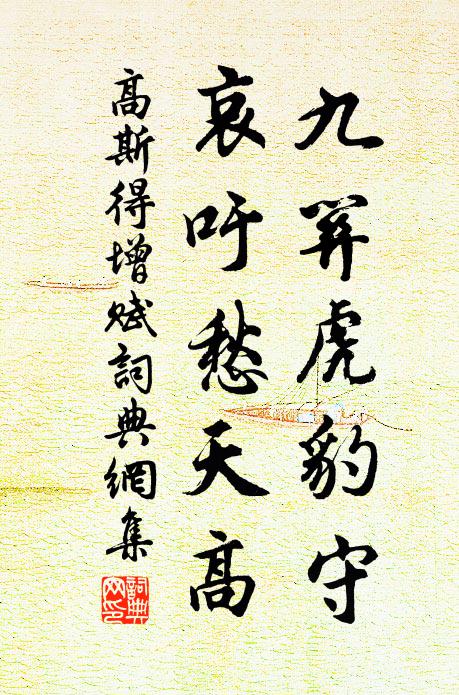 九關虎豹守
哀吁愁天高
高斯得增賦詞典網集
詞典
网印